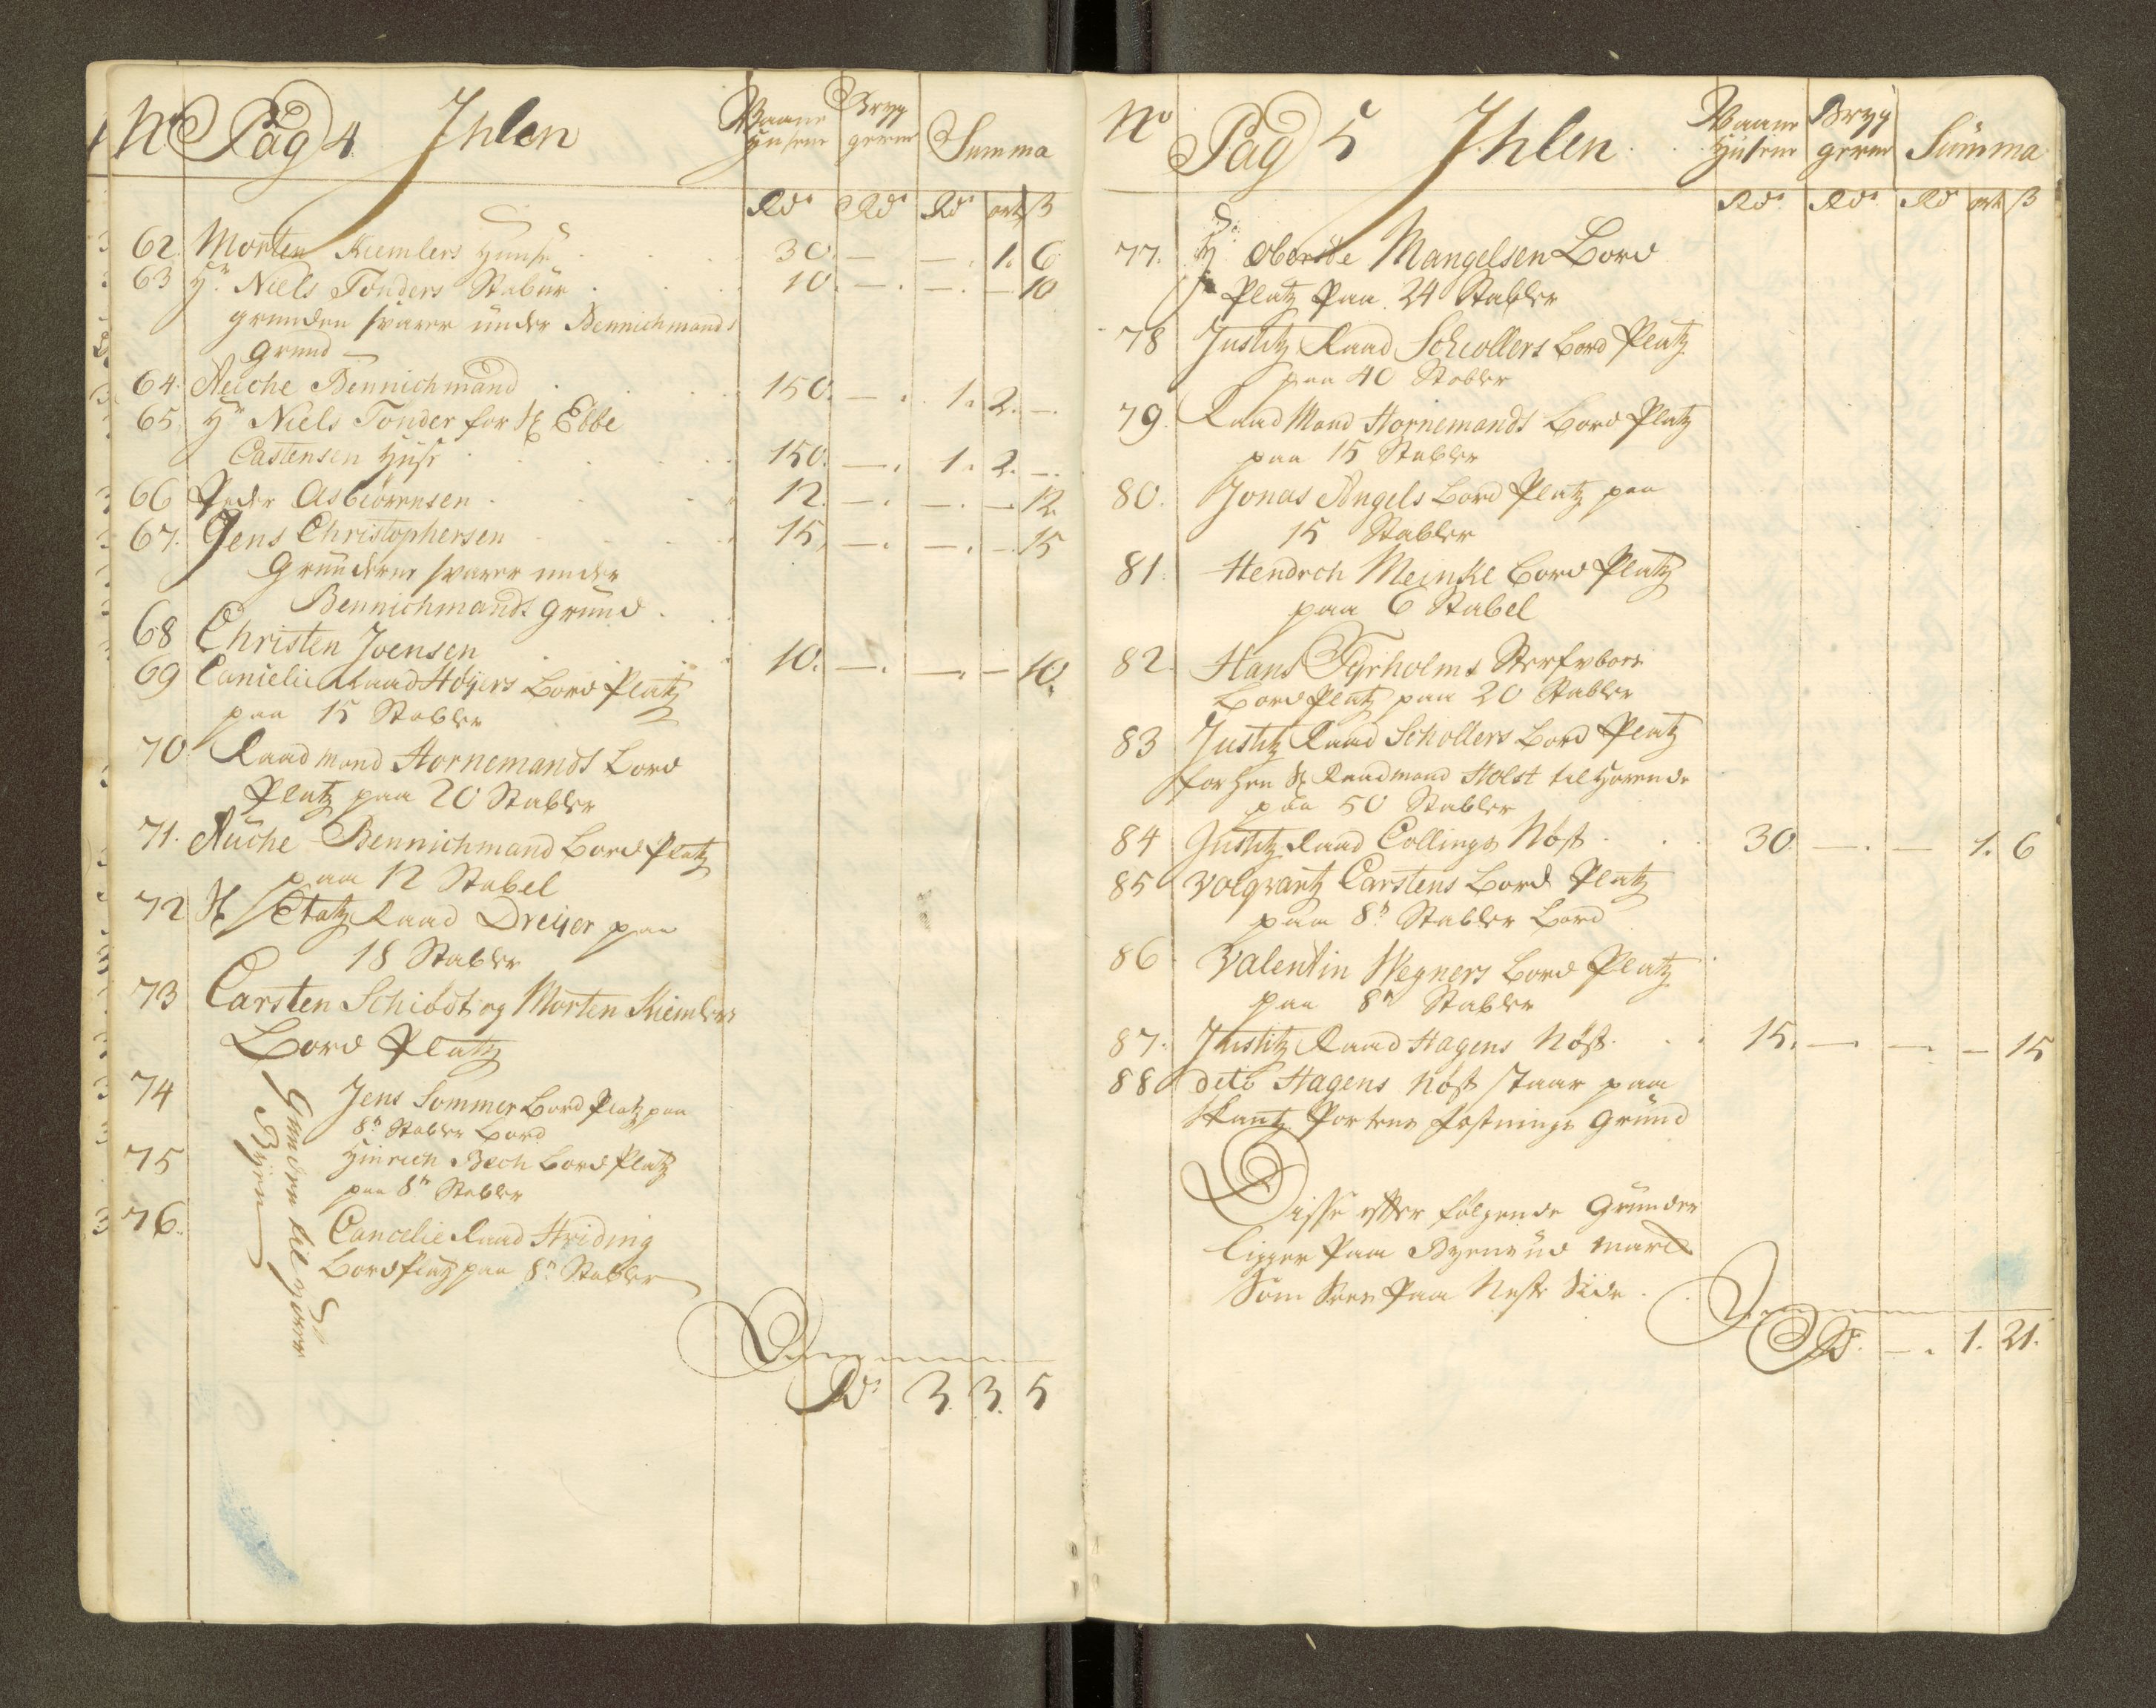 No Pag 4. Ihlen Waane Husene Bryggerne Summa
Rdr Rdr Rdr ort ß
62. Morten Kiemlers Huuse 30. — — 1. 6
63 Hr. Niels Tonders Stabür 10. — — — 10
grunden svarer ünder Bennichmands
Grund —
64. Aüche Bennichmand 150. — 1. 2. —
65. Hr Niels Tonder for H Ebbe
Castensen Huse 150. — 1. 2. —
66 Peder Asbiörensen 12. — — — 12
67. Jens Christophersen 15. — — — 15
Gründerne svarer under
Bennichmands Grund
68 Christen Joensen 10. — — — 10.
69 Cancelie Raad Höyers Bord Platz
paa 15 Stabler
70 Raad mand Hornemands Bord
Platz paa 20 Stabler
71. Aüche Bennichmand Bord Platz
paa 12 Stabel
72 H Etatz Raad Dreyer paa
18 Stabler
73 Carsten Schiödt og Morten Kiemlers
Bord Platz
74 Jens Sommer Bord Platz paa
8n Stabler Bord
75 Hinrich Bech Bord Platz
paa 8n Stabler
76. Cancelie Raad Hriding
Bord Platz paa 8n Stabler
Grunden tilhörer
Byen
Rdr 3. 3. 5
No Pag 5 Ihlen Waane Husene Brygerne Sümma
Rdr Rdr Rdr ort ß
77. H Oberste Mangelsen Bord
Platz Paa 24 Stabler
78 Justitz Raad Schiollers Bord Platz
paa 40 Stabler
79. Raad Mand Hornemands Bord Platz
paa 15 Stabler
80. Jonas Angels Bord Platz paa
15 Stabler
81. Hendrch Meinke Bord Platz
paa 6 Stabel
82. Hans Tyrholms
Bord Platz paa 20 Stabler
83 Justitz Raad Schollers Bord Platz
forhen H Raadmand Holst tilhörende
paa 50 Stabler
84 Justitz Raad Collings Nöst 30 — — 1. 6
85 Volqvartz Carstens Bord Platz
paa 8n Stabler Bord
86 Valentin Wegners Bord Platz
paa 8n Stabler
87. Justitz Raad Hagens Nöst 15. — — — 15
88 dito Hagens Nöst staar paa
Skantz Portens Fæstnings Gründ
Disse efter følgende Grunder
ligger Paa Byens üd marck
Som Sees Paa Neste Side.
Rdr — 1. 21.